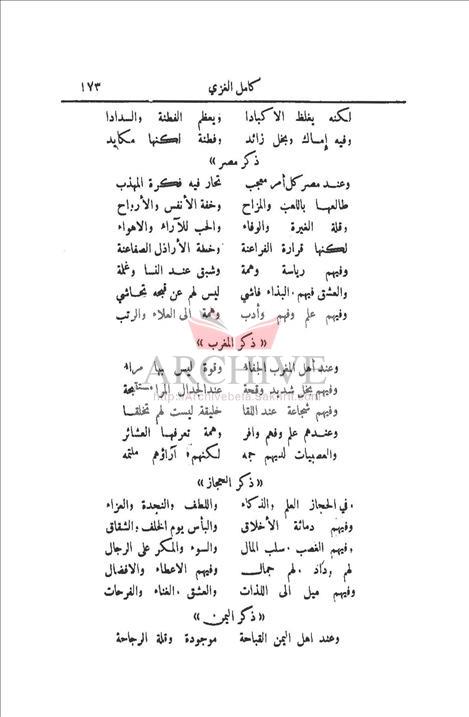 كامل الغزي ١٧٣
لكنه يغلظ الاكبادا ويعظم الفطنة والسدادا
وفيه إمساك وبخل زائد وفطنة لكنها مكايد
ذكر مصر »
وعند مصر كل أمر معجب تحار فيه فكرة المهذب
طالعها باللعب والمزاح وخفة الأنفس والأرواح
وقلة الغيرة والوفاء والحب للآراء والاهواء
لكنها قرارة الفراعنة وخطة الأراذل الصفاعنة
وفيهم رياسة وهمة وشبق عند النسا وغلمة
والعشق فيهم والبذاء فاشي ليس لهم عن قبحه تحاشي
وفيهم علم وفهم وأدب وهمة الى العلاء والرتب
« ذكر المغرب »
ARCHIVE
وعند اهل المغرب الجفاء وقوة ليس بها مراء
http://Archivebeta.Sakhrit.com
وفيهم بخل شديد وقحة عند الجدال
وفيهم شجاعة عند اللقا خليقة ليست لهم تخلقا
وعندهم علم وفهم وافر وهمة تعرفها العشائر
والعصبيات لديهم جمه لكنهم آراؤهم ملتمه
« ذكر الحجاز »
في الحجاز العلم والذكاء واللطف والنجدة والعزاء
وفيهم دماثة الأخلاق والبأس يوم الخلف والشقاق
وفيهم الغصب وسلب المال والسوء والمكر على الرجال
لهم وداد ولهم جمال وفيهم الاعطاء والافضال
وفيهم ميل الى اللذات والعشق والغناء والفرحات
« ذكر اليمن »
وعند اهل اليمن القباحة موجودة وقلة الرجاحة